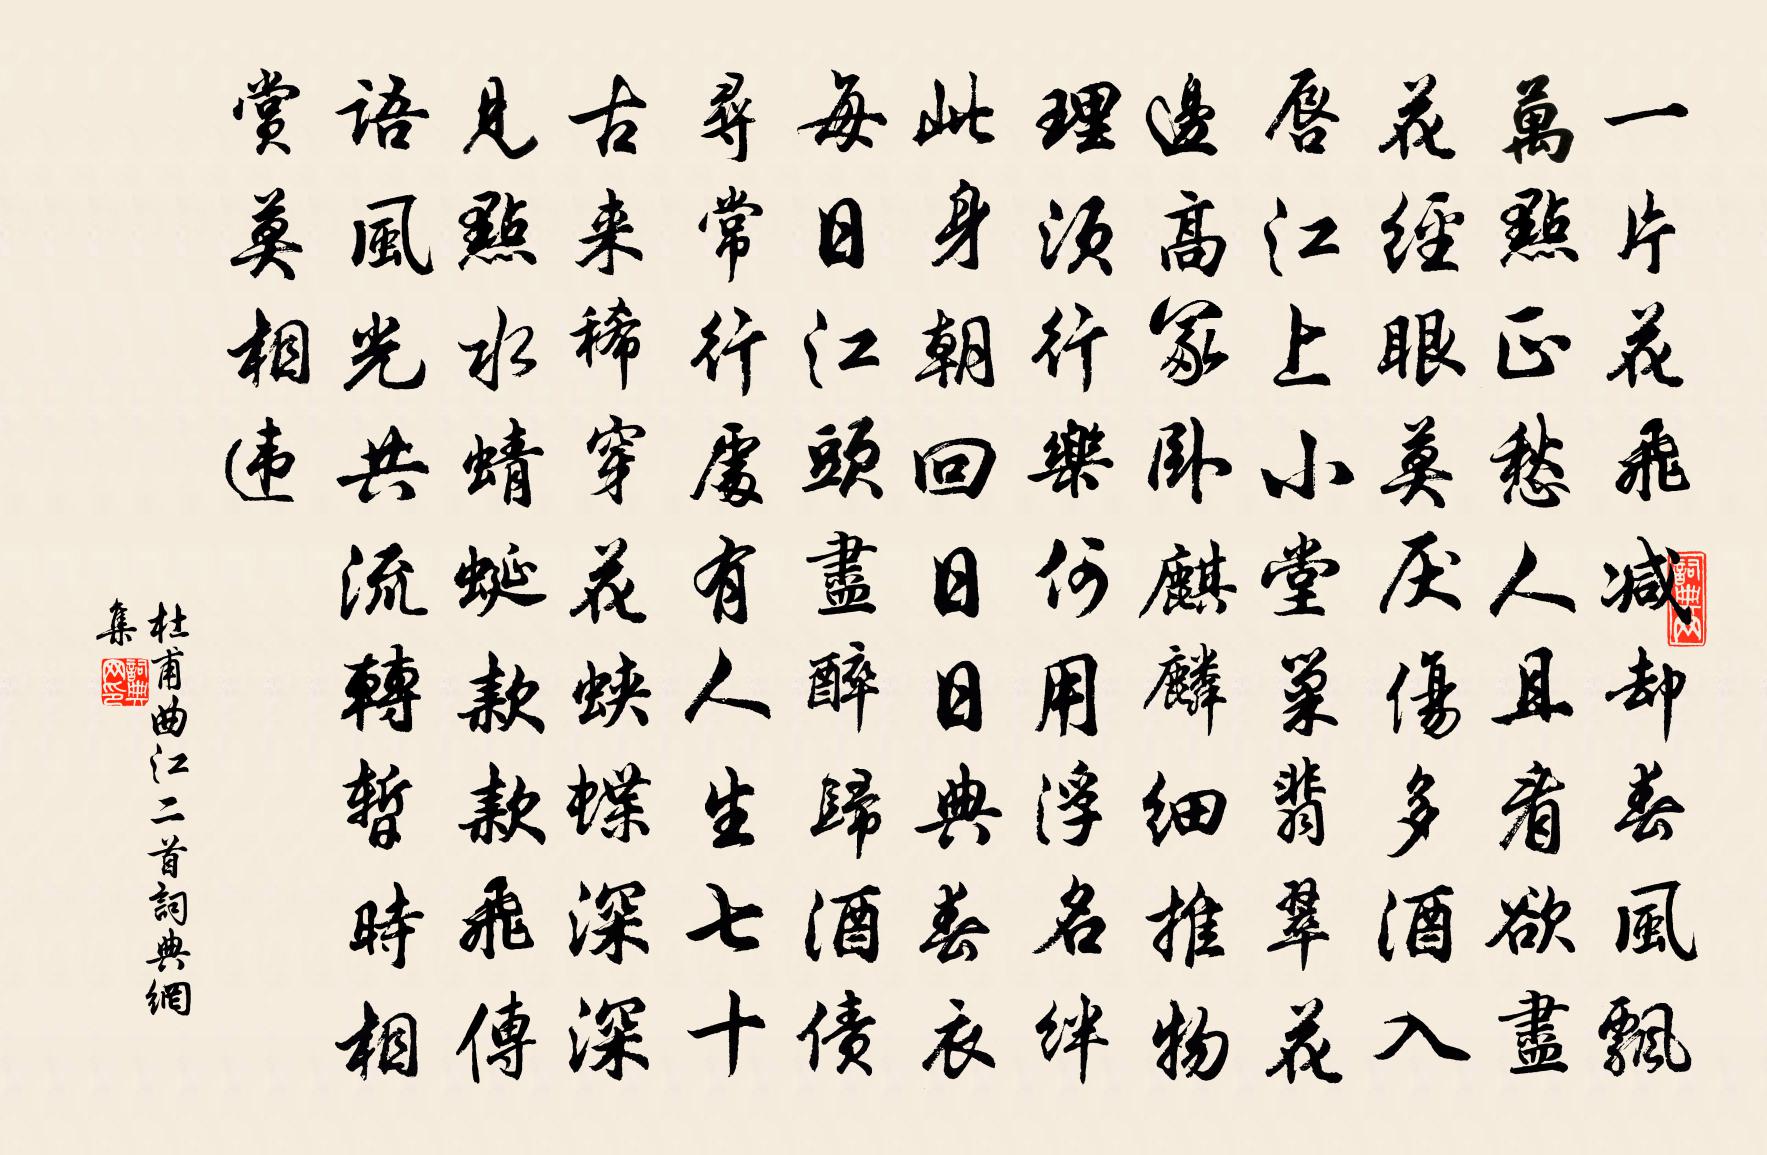 一片花飛減却春風飄
萬點正愁人且看欲盡
花經眼莫厌傷多酒入
唇江上小堂巢翡翠花
邊高冢卧麒麟細推物
理須行樂何用浮名絆
此身朝回日日典春衣
每日江頭盡醉歸酒債
尋常行處有人生七十
古来稀穿花蛺蝶深深
見點水蜻蜓款款飛傳
語風光共流轉暫時相
賞莫相違
杜甫曲江二首詞典網
集
詞典网
詞典网印